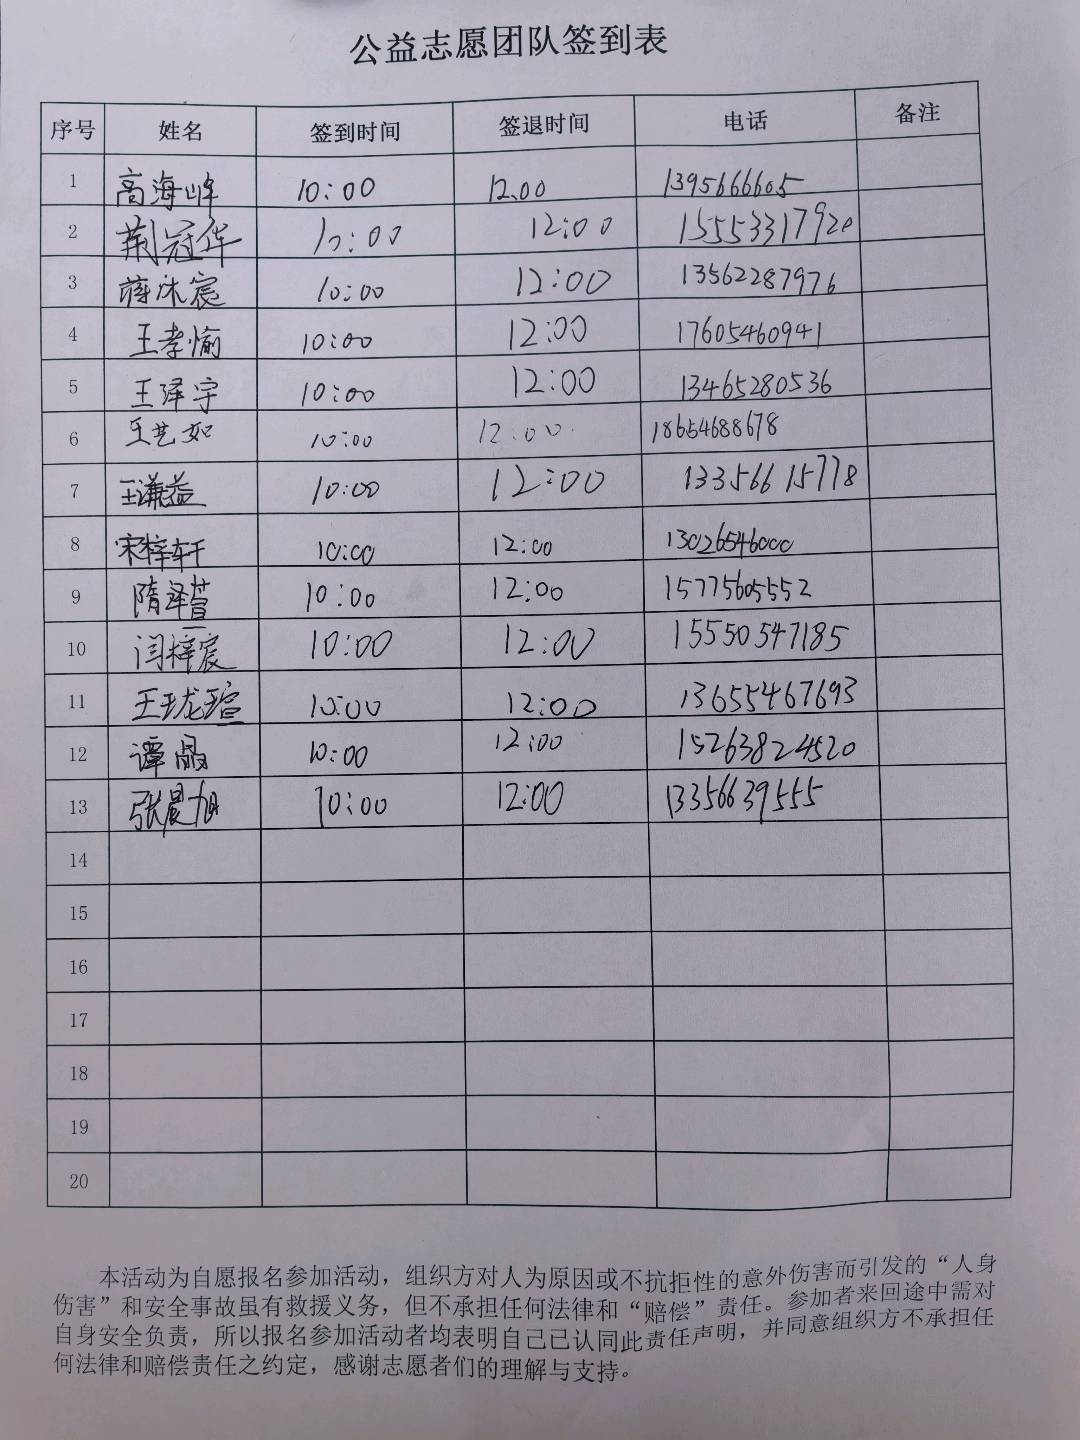 公益志愿团队签到表
序号 姓名 签到时间 签退时间 电话 备注
1 高海峰 10:00 12.00 1395666605
2 荆冠华 10:00 12:00 15553317920
3 蒋沐宸 10:00 12:00 13562287976
4 王孝愉 10:00 12:00 17605460941
5 王泽宇 10:00 12:00 13465280536
6 王艺如 10:00 12:00 18654688678
7 王谦益 10:00 12:00 13356615778
8 宋梓轩 10:00 12:00 13026546000
9 隋泽萱 10:00 12:00 15775605552
10 闫梓宸 10:00 12:00 15550547185
11 王珑瑄 10:00 12:00 13655467693
12 谭晶 10:00 12:00 15263824520
13 张晨旭 10:00 12:00 13356639555
14
15
16
17
18
19
20
本活动为自愿报名参加活动，组织方对人为原因或不抗拒性的意外伤害而引发的“人身
伤害”和安全事故虽有救援义务，但不承担任何法律和“赔偿”责任。参加者来回途中需对
自身安全负责，所以报名参加活动者均表明自己已认同此责任声明，并同意组织方不承担任
何法律和赔偿责任之约定，感谢志愿者们的理解与支持。